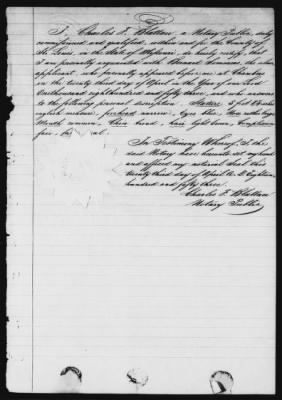 I, Charles F. Blattau, a Notary Public, duly
commissioned and qualified, within and for the County of
St. Louis, in the State of Missouri, do hereby certify, that
I am personally acquainted with Bernard the above
applicant, who personally appeared before me at
on the twenty third day of April in the Year of our Lord
One thousand eight hundred and fifty three, and who answers
to the following personal description. Stature 5 feet
english forehead narrow, Eyes blue, Nose rather large
Mouth common, Chin broad, hair light brown, Complexion
fair, face oval.
In Testimony Whereof, I, the
said Notary have hereunto set my hand
and affixed my notarial Seal this
twenty third day of April A. D. Eighteen
hundred and fifty three.
Charles F. Blattau
Notary Public